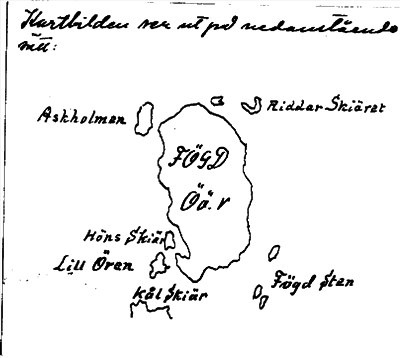 Kartbilden ser ut på nedanstående
sätt:
Askholmen
Riddar Skiäret
FÖGD
ÖÄ.r
Höns Skiär
Lill Ören
Kål Skiär
Fögd Sten